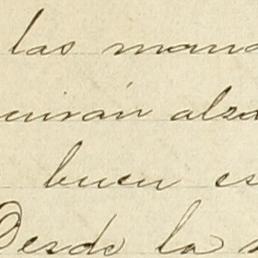 las mana
uirán alza
buen es
Desde la